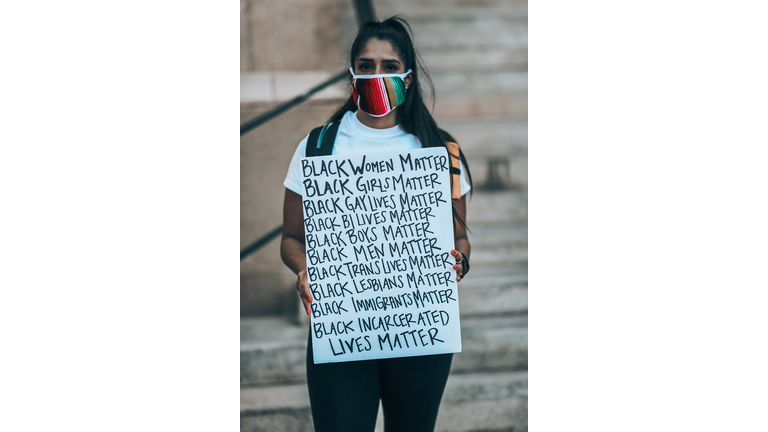 BLACK WOMEN MATTER
BLACK GIRLS MATTER
BLACK GAY LIVES MATTER
BLACK BI LIVES MATTER
BLACK BOYS MATTER
BLACK MEN MATTER
BLACK TRANS LIVES MATTER
BLACK LESBIANS MATTER
BLACK IMMIGRANTS MATTER
BLACK INCARCERATED
LIVES MATTER